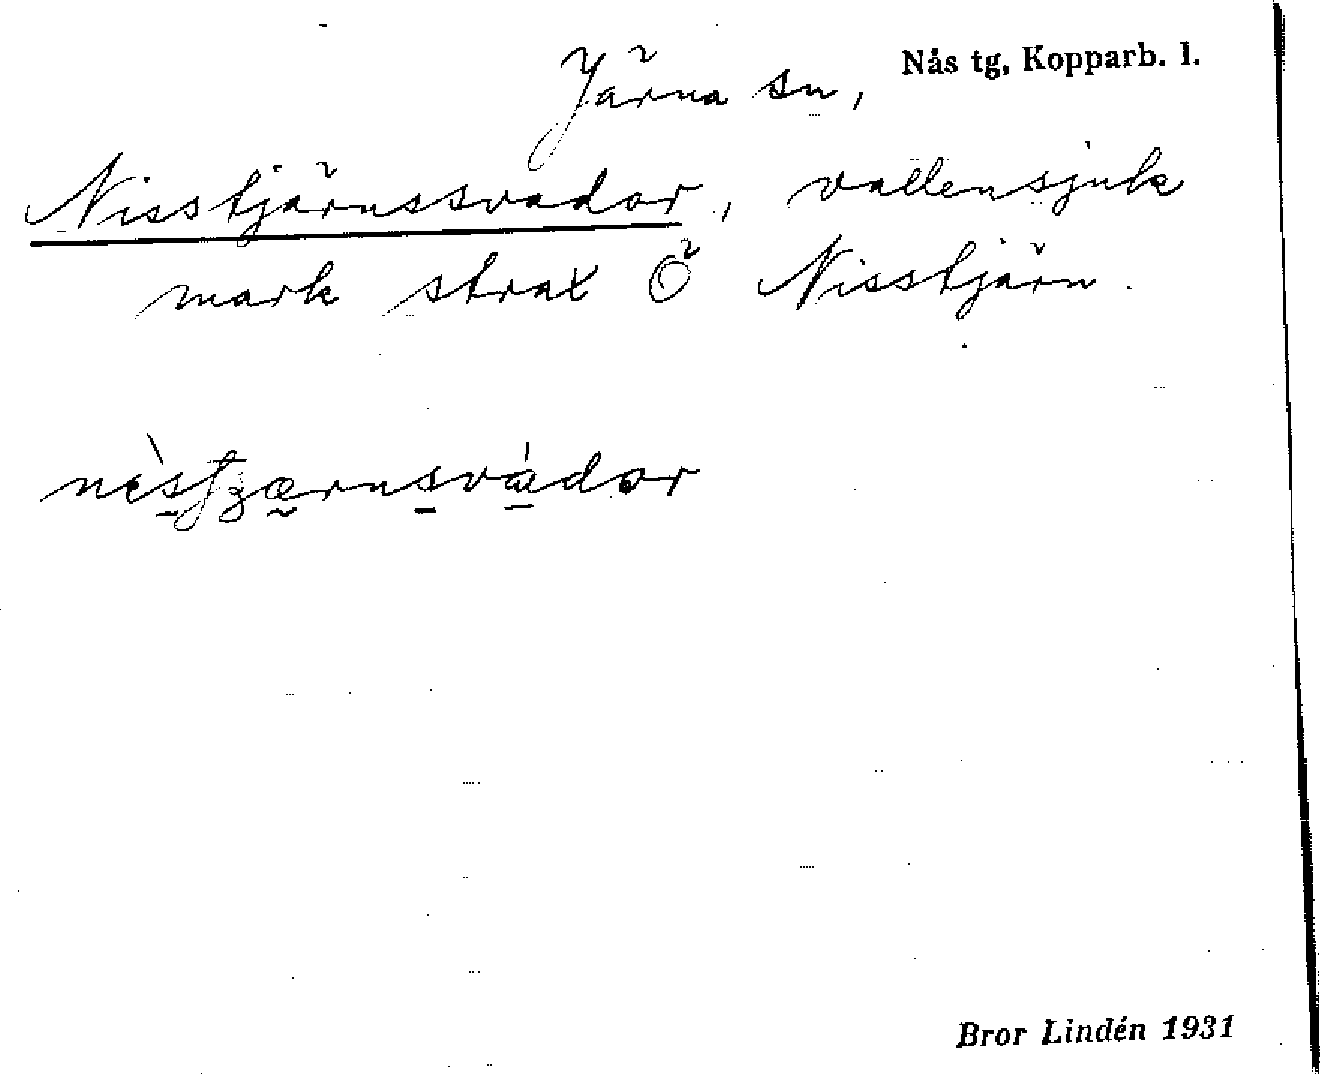 Järna sn, Nås tg, Kopparb. l.
Nisstjärnssvador, vattensjuk
mark strax Ö Nisstjärn.
Bror Lindén 1931